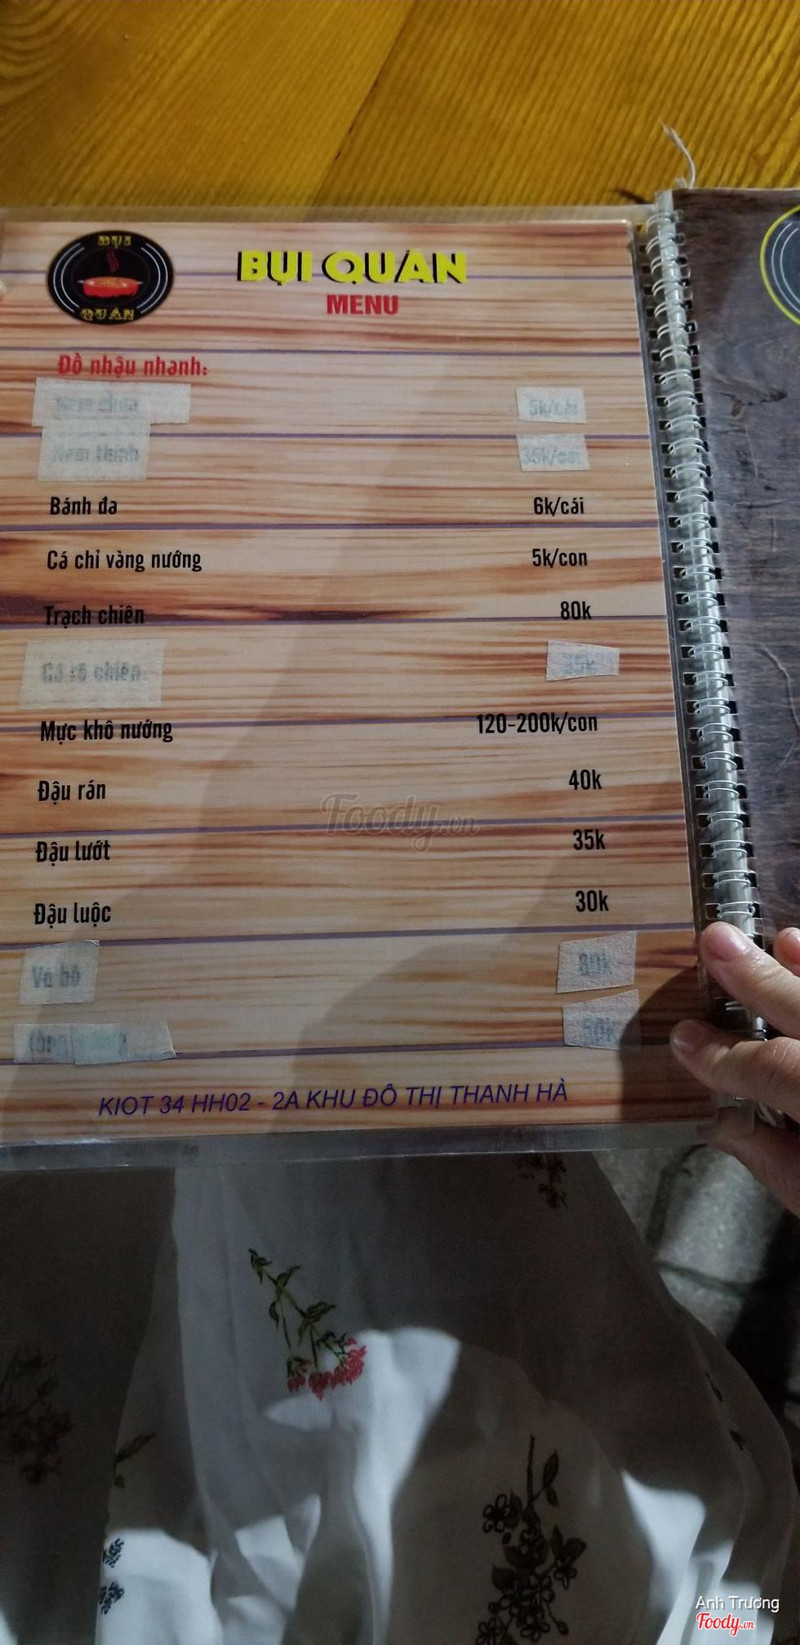 BỤI
QUÁN
BỤI QUÁN
MENU
Đồ nhậu nhanh:
Nem chua 5k/cái
Nem thính 35k/
Bánh đa 6k/cái
Cá chỉ vàng nướng 5k/con
Trạch chiên 80k
Cá rô chiên
Mực khô nướng 120-200k/con
Đậu rán 40k
Foody.vn
Đậu lướt 35k
Đậu luộc 30k
bò 80k
50k
KIOT 34 HH02 - 2A KHU ĐÔ THỊ THANH HÀ
Anh Trương
Foody.vn